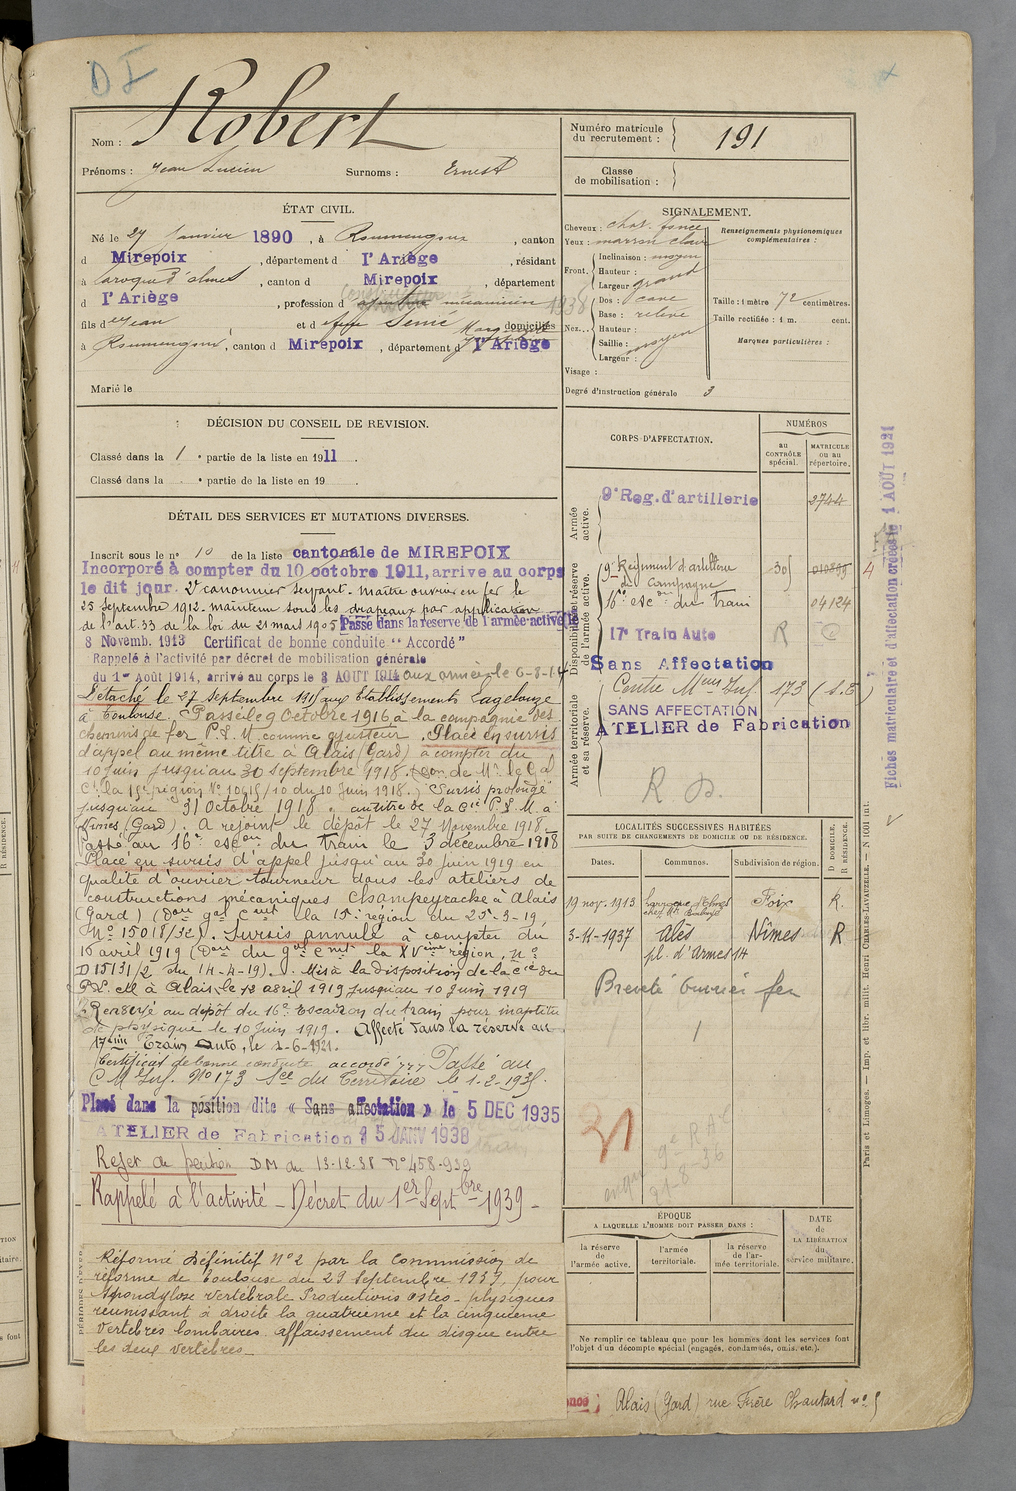 D I
Nom : Robert
Prénoms : Jean Lucien Surnoms : Ernest
Numéro matricule du recrutement : 191
Classe de mobilisation :
ÉTAT CIVIL.
Né le 27 janvier 1890, à Roumengoux, canton
d Mirepoix, département d l'Ariège, résidant
à Laroque d'olmes, canton d Mirepoix, département
d l'Ariège, profession d mécanicien 1938
fils d e Jean et d domiciliés
à Roumengoux, canton d Mirepoix, département d l'Ariège
Marié le
SIGNALEMENT.
Cheveux : chat. foncé
Yeux : marron clair
Front. Inclinaison : moyen
Hauteur :
Largeur grand
Nez... Dos : cave
Base : relevé
Hauteur :
Saillie : moyen
Largeur :
Visage :
Degré d'instruction générale 3
Renseignements physionomiques complémentaires :
Taille : 1 mètre 72 centimètres.
Taille rectifiée : 1 m. cent.
Marques particulières :
DÉCISION DU CONSEIL DE REVISION.
Classé dans la 1 e partie de la liste en 1911.
Classé dans la e partie de la liste en 19 .
DÉTAIL DES SERVICES ET MUTATIONS DIVERSES.
Inscrit sous le n° 10 de la liste cantonale de MIREPOIX
Incorporé à compter du 10 octobre 1911, arrive au corps
le dit jour. 2e canonnier servant. maître ouvrier en fer le
25 Septembre 1912. maintenu sous les drapeaux par application
de l'art. 33 de la loi du 21 mars 1905 Passé dans la réserve de l'armée active le
8 Novemb. 1913 Certificat de bonne conduite "Accordé"
Rappelé à l'activité par décret de mobilisation générale
du 1er Août 1914, arrivé au corps le 3 AOUT 1914 aux armées le 6-8-14
Détaché le 27 Septembre 1915 aux Etablissements
à Toulouse. Passé le 9 Octobre 1916 à la compagnie des
chemins de fer P.L.M. comme ajusteur. Placé en sursis
d'appel au même titre à Alais (Gard) à compter du
10 juin jusqu'au 30 septembre 1918. de Mr le Gal
Ct la 15e région No 10415/10 du 10 juin 1918.) Sursis prolongé
jusqu'au 31 Octobre 1918. au titre de la Cie P.L.M. à
Nîmes (Gard). A rejoint le dépôt le 27 Novembre 1918.
Passé au 16e escon du train le 3 décembre 1918
Placé en sursis d'appel jusqu'au 30 juin 1919 en
qualité d'ouvrier tourneur dans les ateliers de
constructions mécaniques Champeyrache à Alais
(Gard) (Don gal Cmt la 15e région du 25-3-19,
No 15018/32). Sursis annulé à compter du
16 avril 1919 (Don du gal Cmt la XVème région, no
D 15131/2 du 14-4-19). Mis à la disposition de la Cie du
P.L.M à Alais, le 18 avril 1919 jusqu'au 10 juin 1919
Renvoyé au dépôt du 16e Escadron du train pour inaptitude
physique le 10 juin 1919. Affecté dans la réserve au
17ème Train Auto, le 1-6-1921.
Certificat de bonne conduite accordé. Passé au
C M Inf. No 173 Sce du Territoire le 1-2-1935.
Placé dans la position dite « Sans affectation » le 5 DEC 1935
ATELIER de Fabrication 15 JANV 1938
Rejet de pension DM du 13-12-38 No 458-939
Rappelé à l'activité - Décret du 1er Septbre 1939 -
Réformé Définitif No 2 par la Commission de
réforme de Toulouse du 29 Septembre 1939, pour
Spondylose vertébrale Productions ostéo-physiques
réunissant à droite la quatrième et la cinquième
vertèbres lombaires. affaissement du disque entre
les deux vertèbres
CORPS D'AFFECTATION.
NUMÉROS
au CONTRÔLE spécial.
MATRICULE ou au répertoire.
Armée active.
9e Reg. d'artillerie 2744
Disponibilité et réserve de l'armée active.
9e Régiment d'artillerie de Campagne 305 010899 4
16e esc on du Train 04124
17e Train Auto R
Sans Affectation
Armée territoriale et sa réserve.
Centre Meur Inf. 173 (S.T)
SANS AFFECTATION
ATELIER de Fabrication
R D.
Fiches matriculaire et d'affectation créées le 1 AOUT 1921
LOCALITÉS SUCCESSIVES HABITÉES
PAR SUITE DE CHANGEMENTS DE DOMICILE OU DE RÉSIDENCE.
Dates. Communes. Subdivision de région. D DOMICILE. R RÉSIDENCE.
19 nov. 1913 Laroque d'Olmes Foix R.
3-11-1937 Alès pl. d'Armes 14 Nîmes R
Breveté Ouvrier fer
21
9e R A C
21-8-36
ÉPOQUE
A LAQUELLE L'HOMME DOIT PASSER DANS :
la réserve de l'armée active.
l'armée territoriale.
la réserve de l'armée territoriale.
DATE de LA LIBÉRATION du service militaire.
Ne remplir ce tableau que pour les hommes dont les services font
l'objet d'un décompte spécial (engagés, condamnés, omis, etc.).
Paris et Limoges. — Imp. et libr. milit. Henri CHARLES-LAVAUZELLE. — N° 1001 int.
Alais (Gard) rue Frère Chautard no 5